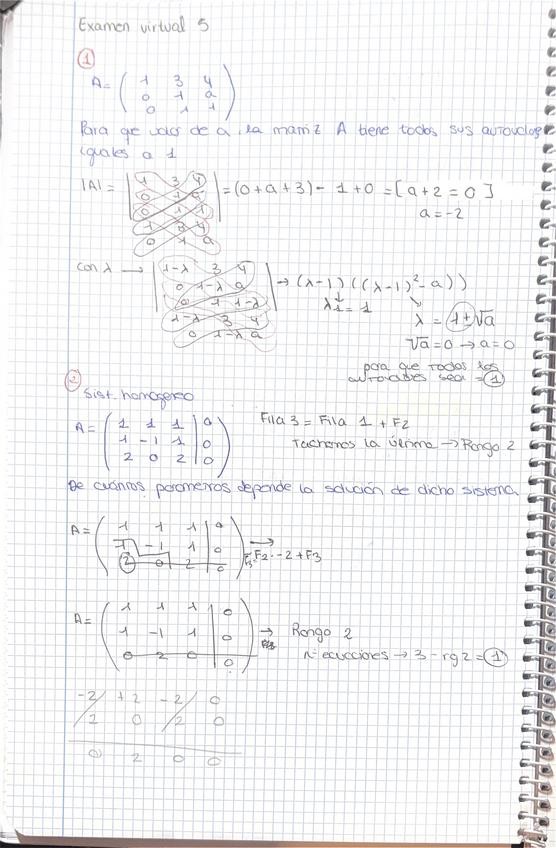 Examen virtual 5
①
A = ( 1 3 4
0 1 a
0 1 1 )
Para que valor de a, la matriz A tiene todos sus autovalores
iguales a 1
|A| = | 1 3 4
0 1 a
0 1 1
1 3 4
0 1 a | = (0 + a + 3) - 1 + 0 = [a + 2 = 0]
a = -2
con λ → | 1-λ 3 4
0 1-λ a
0 1 1-λ
1-λ 3 4
0 1-λ a | → (λ-1) ((λ-1)² - a))
λ1 = 1
λ = 1±√a
√a = 0 → a = 0
para que todos los
autovalores sea = ①
② Sist. homogeneo
A = ( 1 1 1 | 0
1 -1 1 | 0
2 0 2 | 0 )
Fila 3 = Fila 1 + F2
Tachamos la última → Rango 2
De cuántos parometros depende la solución de dicho sistema
A = ( 1 1 1 | 0
1 -1 1 | 0
2 0 2 | 0 ) →
F3= F2·-2 + F3
A = ( 1 1 1 | 0
1 -1 1 | 0
0 2 0 | 0 ) → Rango 2
nº ecuaciones → 3 - rg 2 = ①
-2 +2 -2 0
2 0 2 0
0 2 0 0